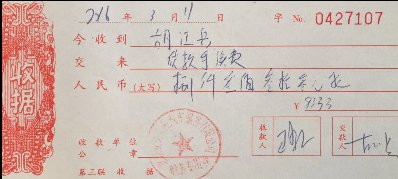 2016 年 3 月 11 日 字 No. 0427107
今 收 到 胡江兵
交 来 贷款手续费
人 民 币 (大写) 捌仟叁佰叁拾叁元整
¥ 8333
收据
收 款 单 位
公 章
收款人
交款人
第三联 收 据